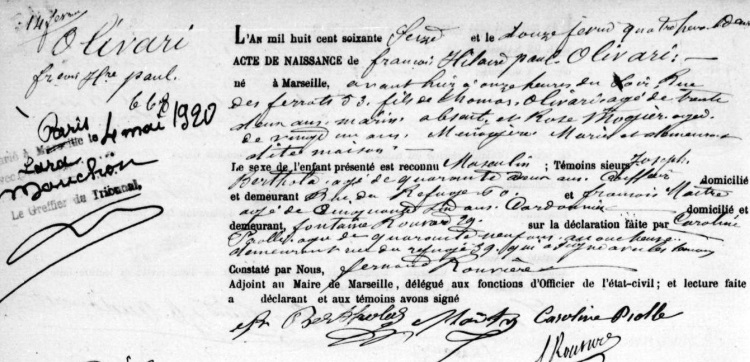 Olivari
paul.
668
Paris
le 4 mai 1920
Zara
Mauchon
Le Greffier du Tribunal,
L'AN mil huit cent soixante Seize et le Douze
ACTE DE NAISSANCE de françois Hilaire paul Olivari
né à Marseille, avant hier à onze heures du Soir Rue
des ferrats 33. fils de Thomas Olivari agé de trente
deux ans marin absent, et Rose agée
de vingt un ans. Ménagère Mariés et
dite maison
Le sexe de l'enfant présenté est reconnu Masculin ; Témoins sieurs Joseph
agé de quarante ans domicilié
et demeurant Rue du Refuge 60. et françois
agé de Cinquante ans. domicilié et
demeurant, fontaine Rouvière 29. sur la déclaration faite par Caroline
agée de quarante neuf ans accoucheuse
demeurant rue du refuge 39. qui a signé avec les témoins
Constaté par Nous, fernand Rouvière
Adjoint au Maire de Marseille, délégué aux fonctions d'Officier de l'état-civil; et lecture faite
a déclarant et aux témoins avons signé
Caroline Piolle
Rouvière